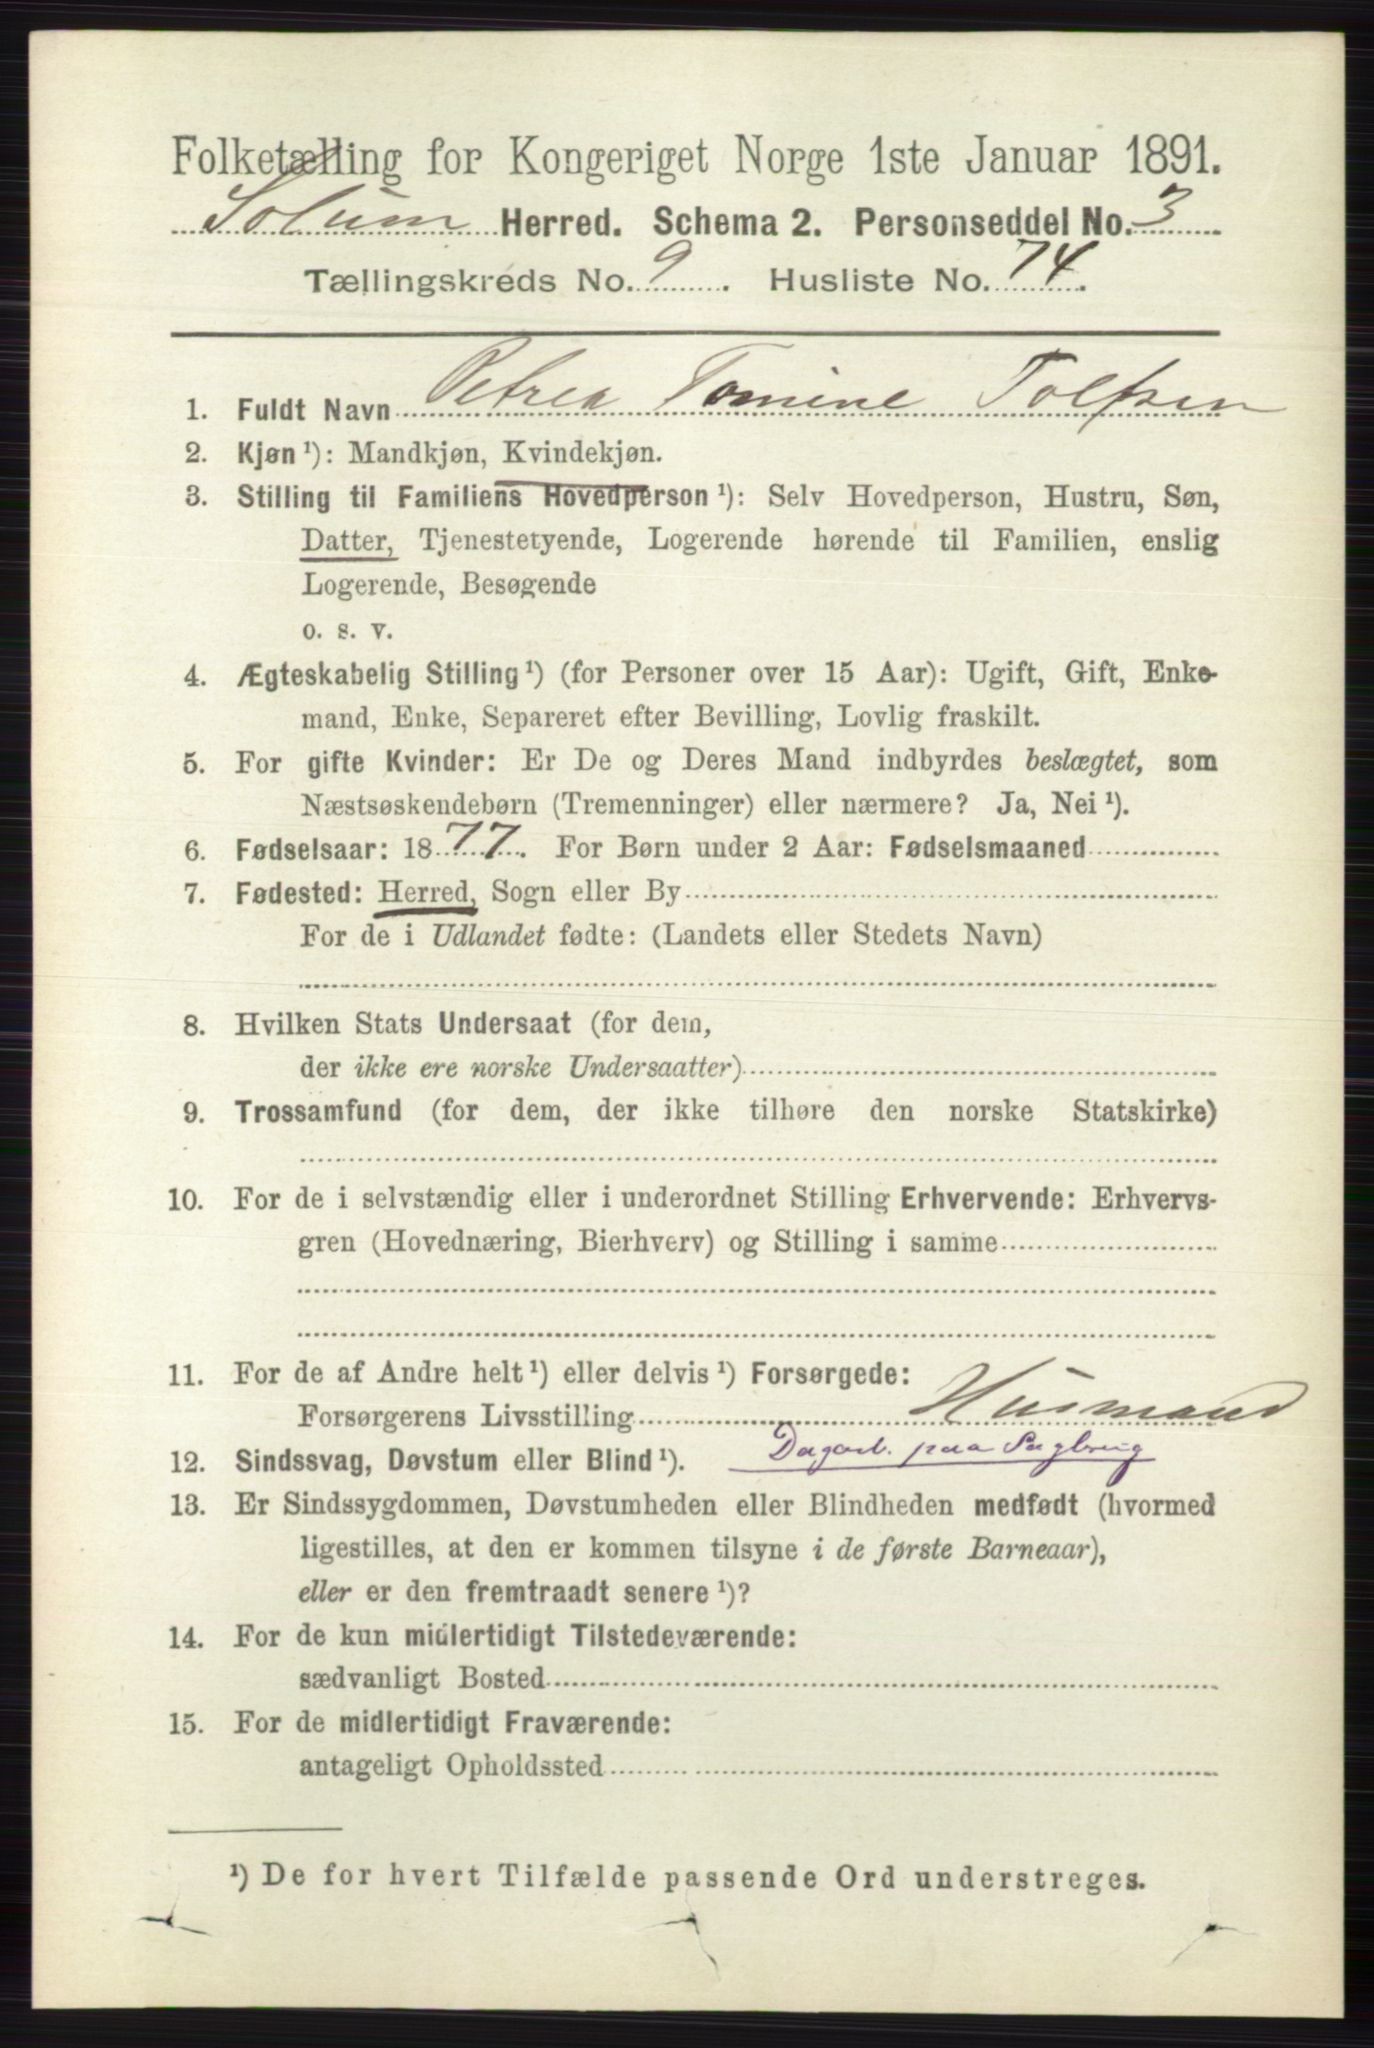 Folketælling for Kongeriget Norge 1ste Januar 1891.
Solum Herred. Schema 2. Personseddel No. 3
Tællingskreds No. 9. Husliste No. 74.
1. Fuldt Navn Petrea Tomine Tolfsen
2. Kjøn ¹): Mandkjøn, Kvindekjøn.
3. Stilling til Familiens Hovedperson ¹): Selv Hovedperson, Hustru, Søn,
Datter, Tjenestetyende, Logerende hørende til Familien, enslig
Logerende, Besøgende
o. s. v.
4. Ægteskabelig Stilling ¹) (for Personer over 15 Aar): Ugift, Gift, Enke-
mand, Enke, Separeret efter Bevilling, Lovlig fraskilt.
5. For gifte Kvinder: Er De og Deres Mand indbyrdes beslægtet, som
Næstsøskendebørn (Tremenninger) eller nærmere? Ja, Nei ¹).
6. Fødselsaar: 1877. For Børn under 2 Aar: Fødselsmaaned
7. Fødested: Herred, Sogn eller By
For de i Udlandet fødte: (Landets eller Stedets Navn)
8. Hvilken Stats Undersaat (for dem,
der ikke ere norske Undersaatter)
9. Trossamfund (for dem, der ikke tilhøre den norske Statskirke)
10. For de i selvstændig eller i underordnet Stilling Erhvervende: Erhvervs-
gren (Hovednæring, Bierhverv) og Stilling i samme
11. For de af Andre helt ¹) eller delvis ¹) Forsørgede:
Forsørgerens Livsstilling Husmand
12. Sindssvag, Døvstum eller Blind ¹). Dagarb. paa Sagbrug
13. Er Sindssygdommen, Døvstumheden eller Blindheden medfødt (hvormed
ligestilles, at den er kommen tilsyne i de første Barneaar),
eller er den fremtraadt senere ¹)?
14. For de kun midlertidigt Tilstedeværende:
sædvanligt Bosted
15. For de midlertidigt Fraværende:
antageligt Opholdssted
¹) De for hvert Tilfælde passende Ord understreges.